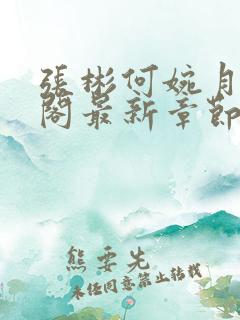 張彬何婉月
閣最新章節
熊要先
未经同意禁止转载